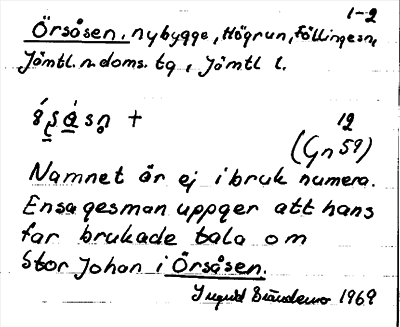 1-2
Örsåsen, nybygge, Högrun, Föllinge sn,
Jämtl. n. doms. tg, Jämtl l.
+
12
(Gn 59)
Namnet är ej i bruk numera.
Ensagesman uppger att hans
far brukade tala om
Stor Johan i Örsåsen.
Ingrid 1969